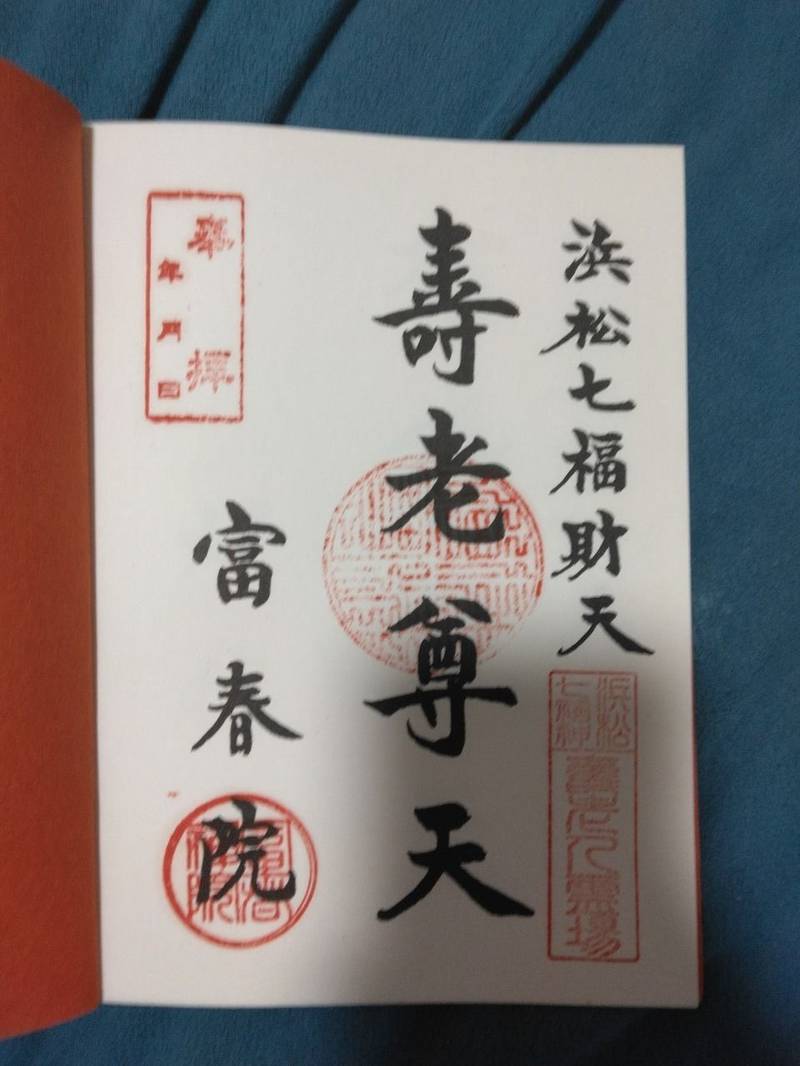 浜松七福財天
浜松
七福神
壽老人霊場
壽老尊天
奉拝
年月日
富春院